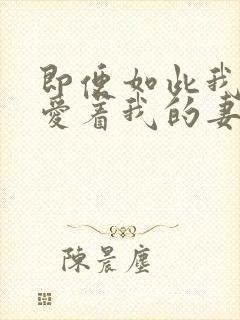 即便如此我
愛着我的妻
陳晨塵